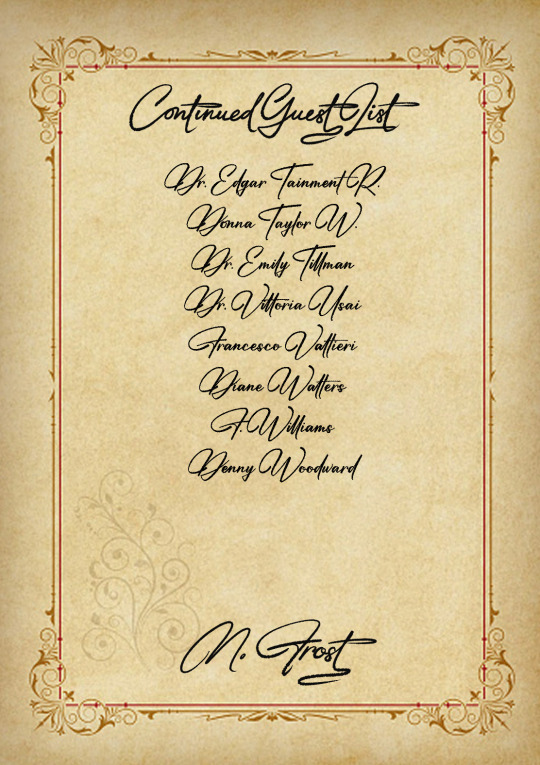 Continued Guest List
Dr. Edgar Tainment R.
Donna Taylor W.
Dr. Emily Tillman
Dr. Vittoria Usai
Francesco Valtieri
Diane Walters
F. Williams
Denny Woodward
N. Frost